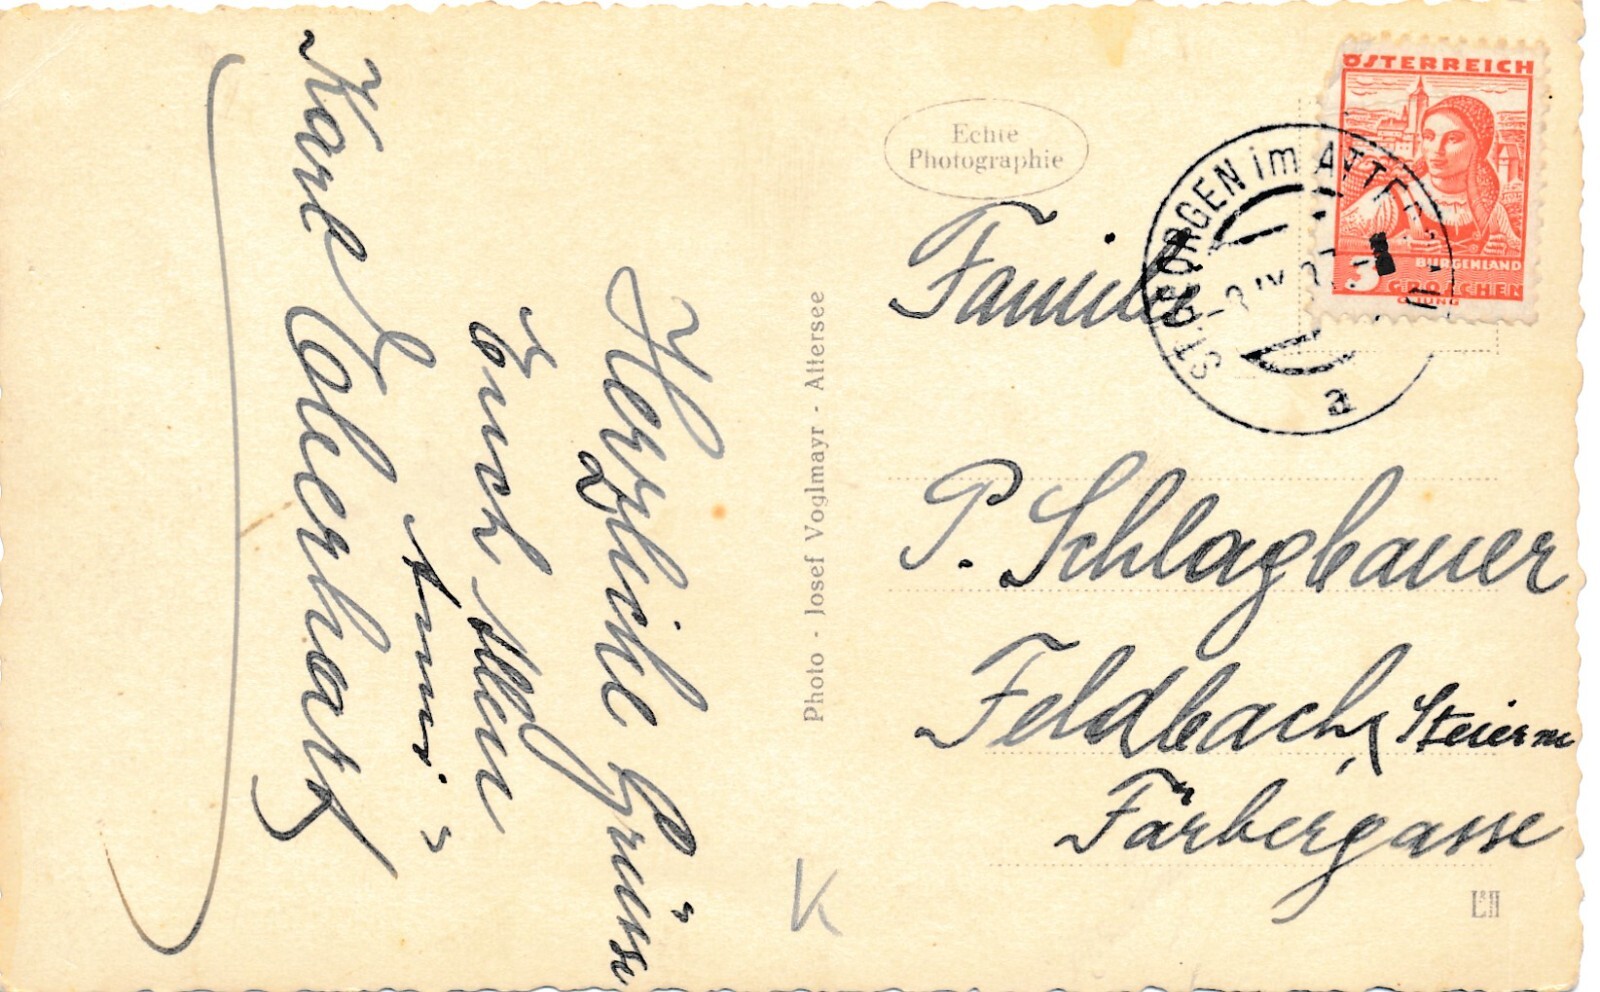 Herzliche Grüsse
Euch Allen
Anni
Karl
Photo - Josef Voglmayr - Attersee
Echte
Photographie
ÖSTERREICH
BURGENLAND
3 GROSCHEN
ST. GEORGEN im ATTER
a
Familie
P. Schlagbauer
Feldbach, Steierm
Färbergasse
K